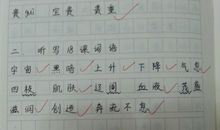 贵 guì 宝贵 贵重
二、听写18课词语
宇宙 黑暗 上升 下降 气息
四肢 肌肤 辽阔 血液 茂盛
滋润 创造 奔流不息